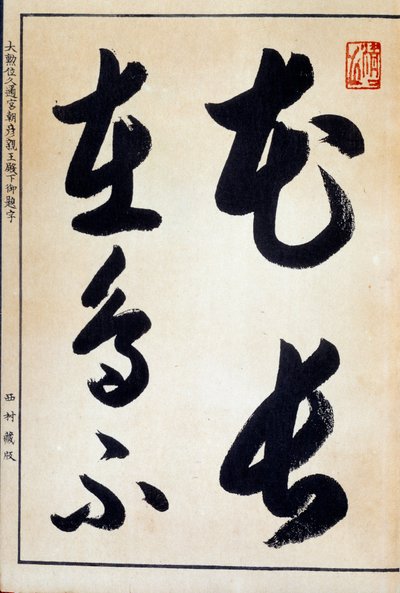 花長
在鳥不
大勲位久邇宮朝彦親王殿下御題字
西村藏版